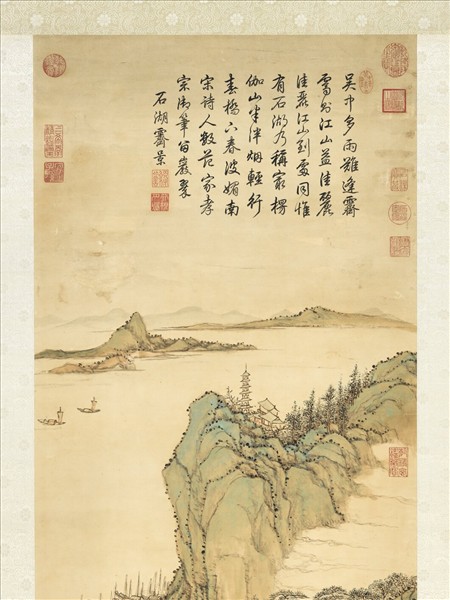 吳中多雨難逢霽
霽則江山益佳麗
佳麗江山到處同惟
有石湖乃稱最楞
伽山半泮烟輕行
春橋下春波媚南
宋詩人數范家孝
宗御筆留巖翠
石湖霽景